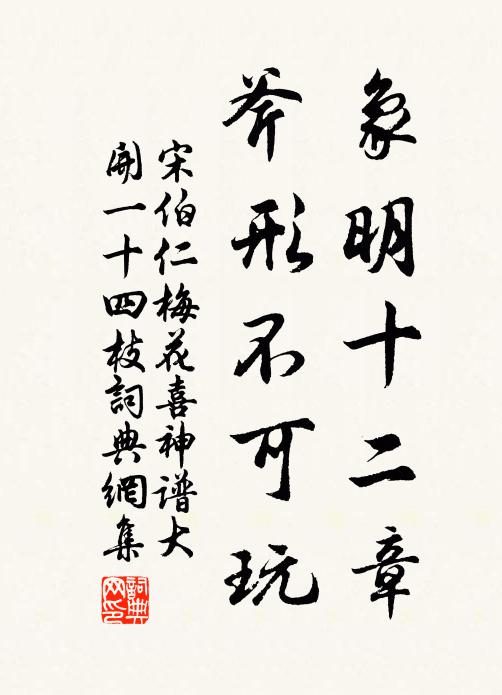 象明十二章
斧形不可玩
宋伯仁梅花喜神谱大
開一十四枝詞典網集
詞典网印